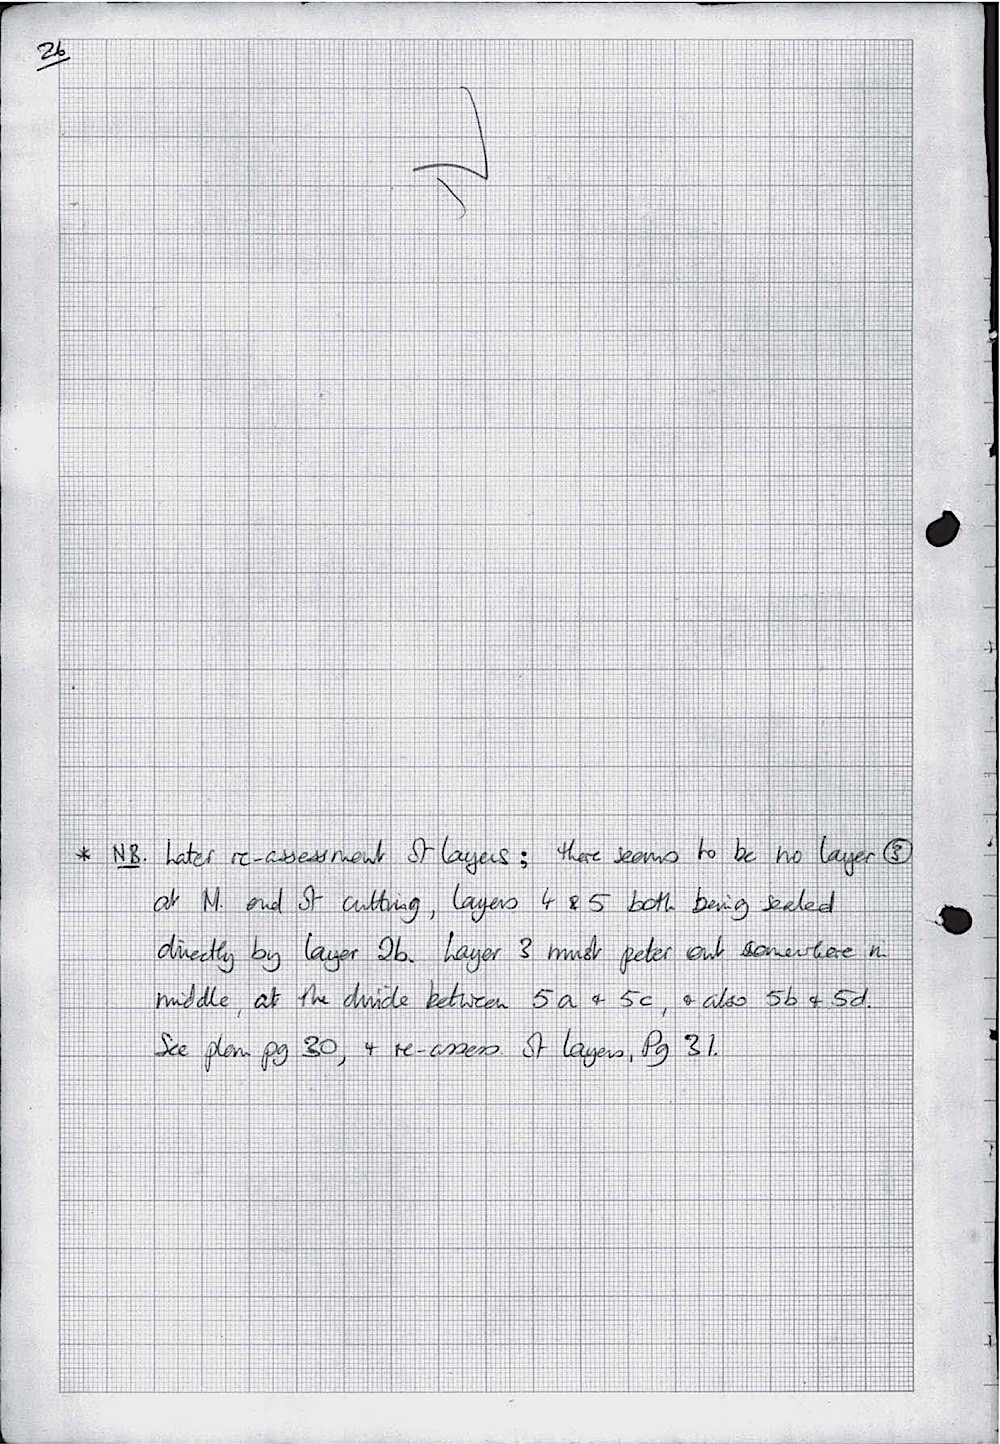 26
* NB. Later re-assessment St layers; there seems to be no layer ③
at N. end St cutting, layers 4 & 5 both being sealed
directly by layer 2b. Layer 3 must peter out somewhere in
middle, at the divide between 5a & 5c, & also 5b & 5d.
See plan pg 30, & re-assess. St layers, Pg 31.